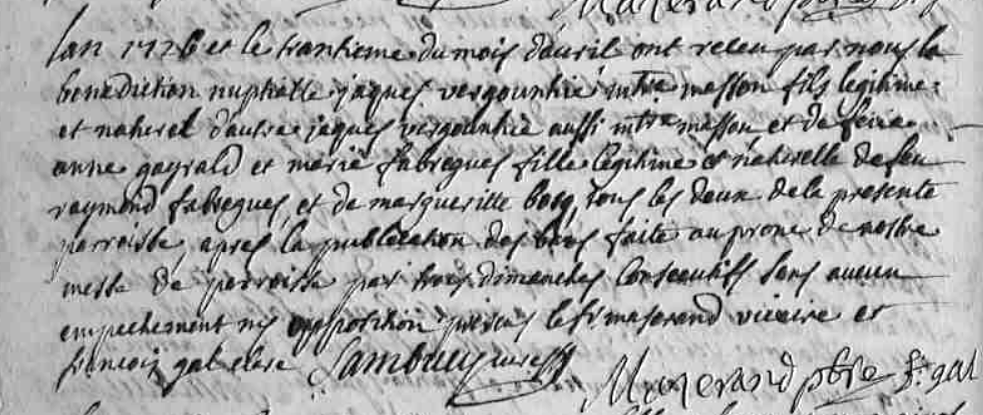 Mazerand ptre
Lan 1726 et le trantieme du mois dauril ont receu par nous la
benediction nuptialle jaques vergounhie mtre masson fils legitime
et naturel dautre jaques vergounhie aussi mtre masson et de feüe
anne gayrald et marie fabregues fille legitime et naturelle de feu
raymond fabregues et de margueritte bosq tous les deux de la presente
parroisse, apres la publication des bans faite au prone de nostre
messe de parroisse par trois dimanches consecutifs sans aucun
empechement ny opposition presens le sr maserand vicaire et
francois gal clerc Sambucy cure
Mazerand ptre f. gal